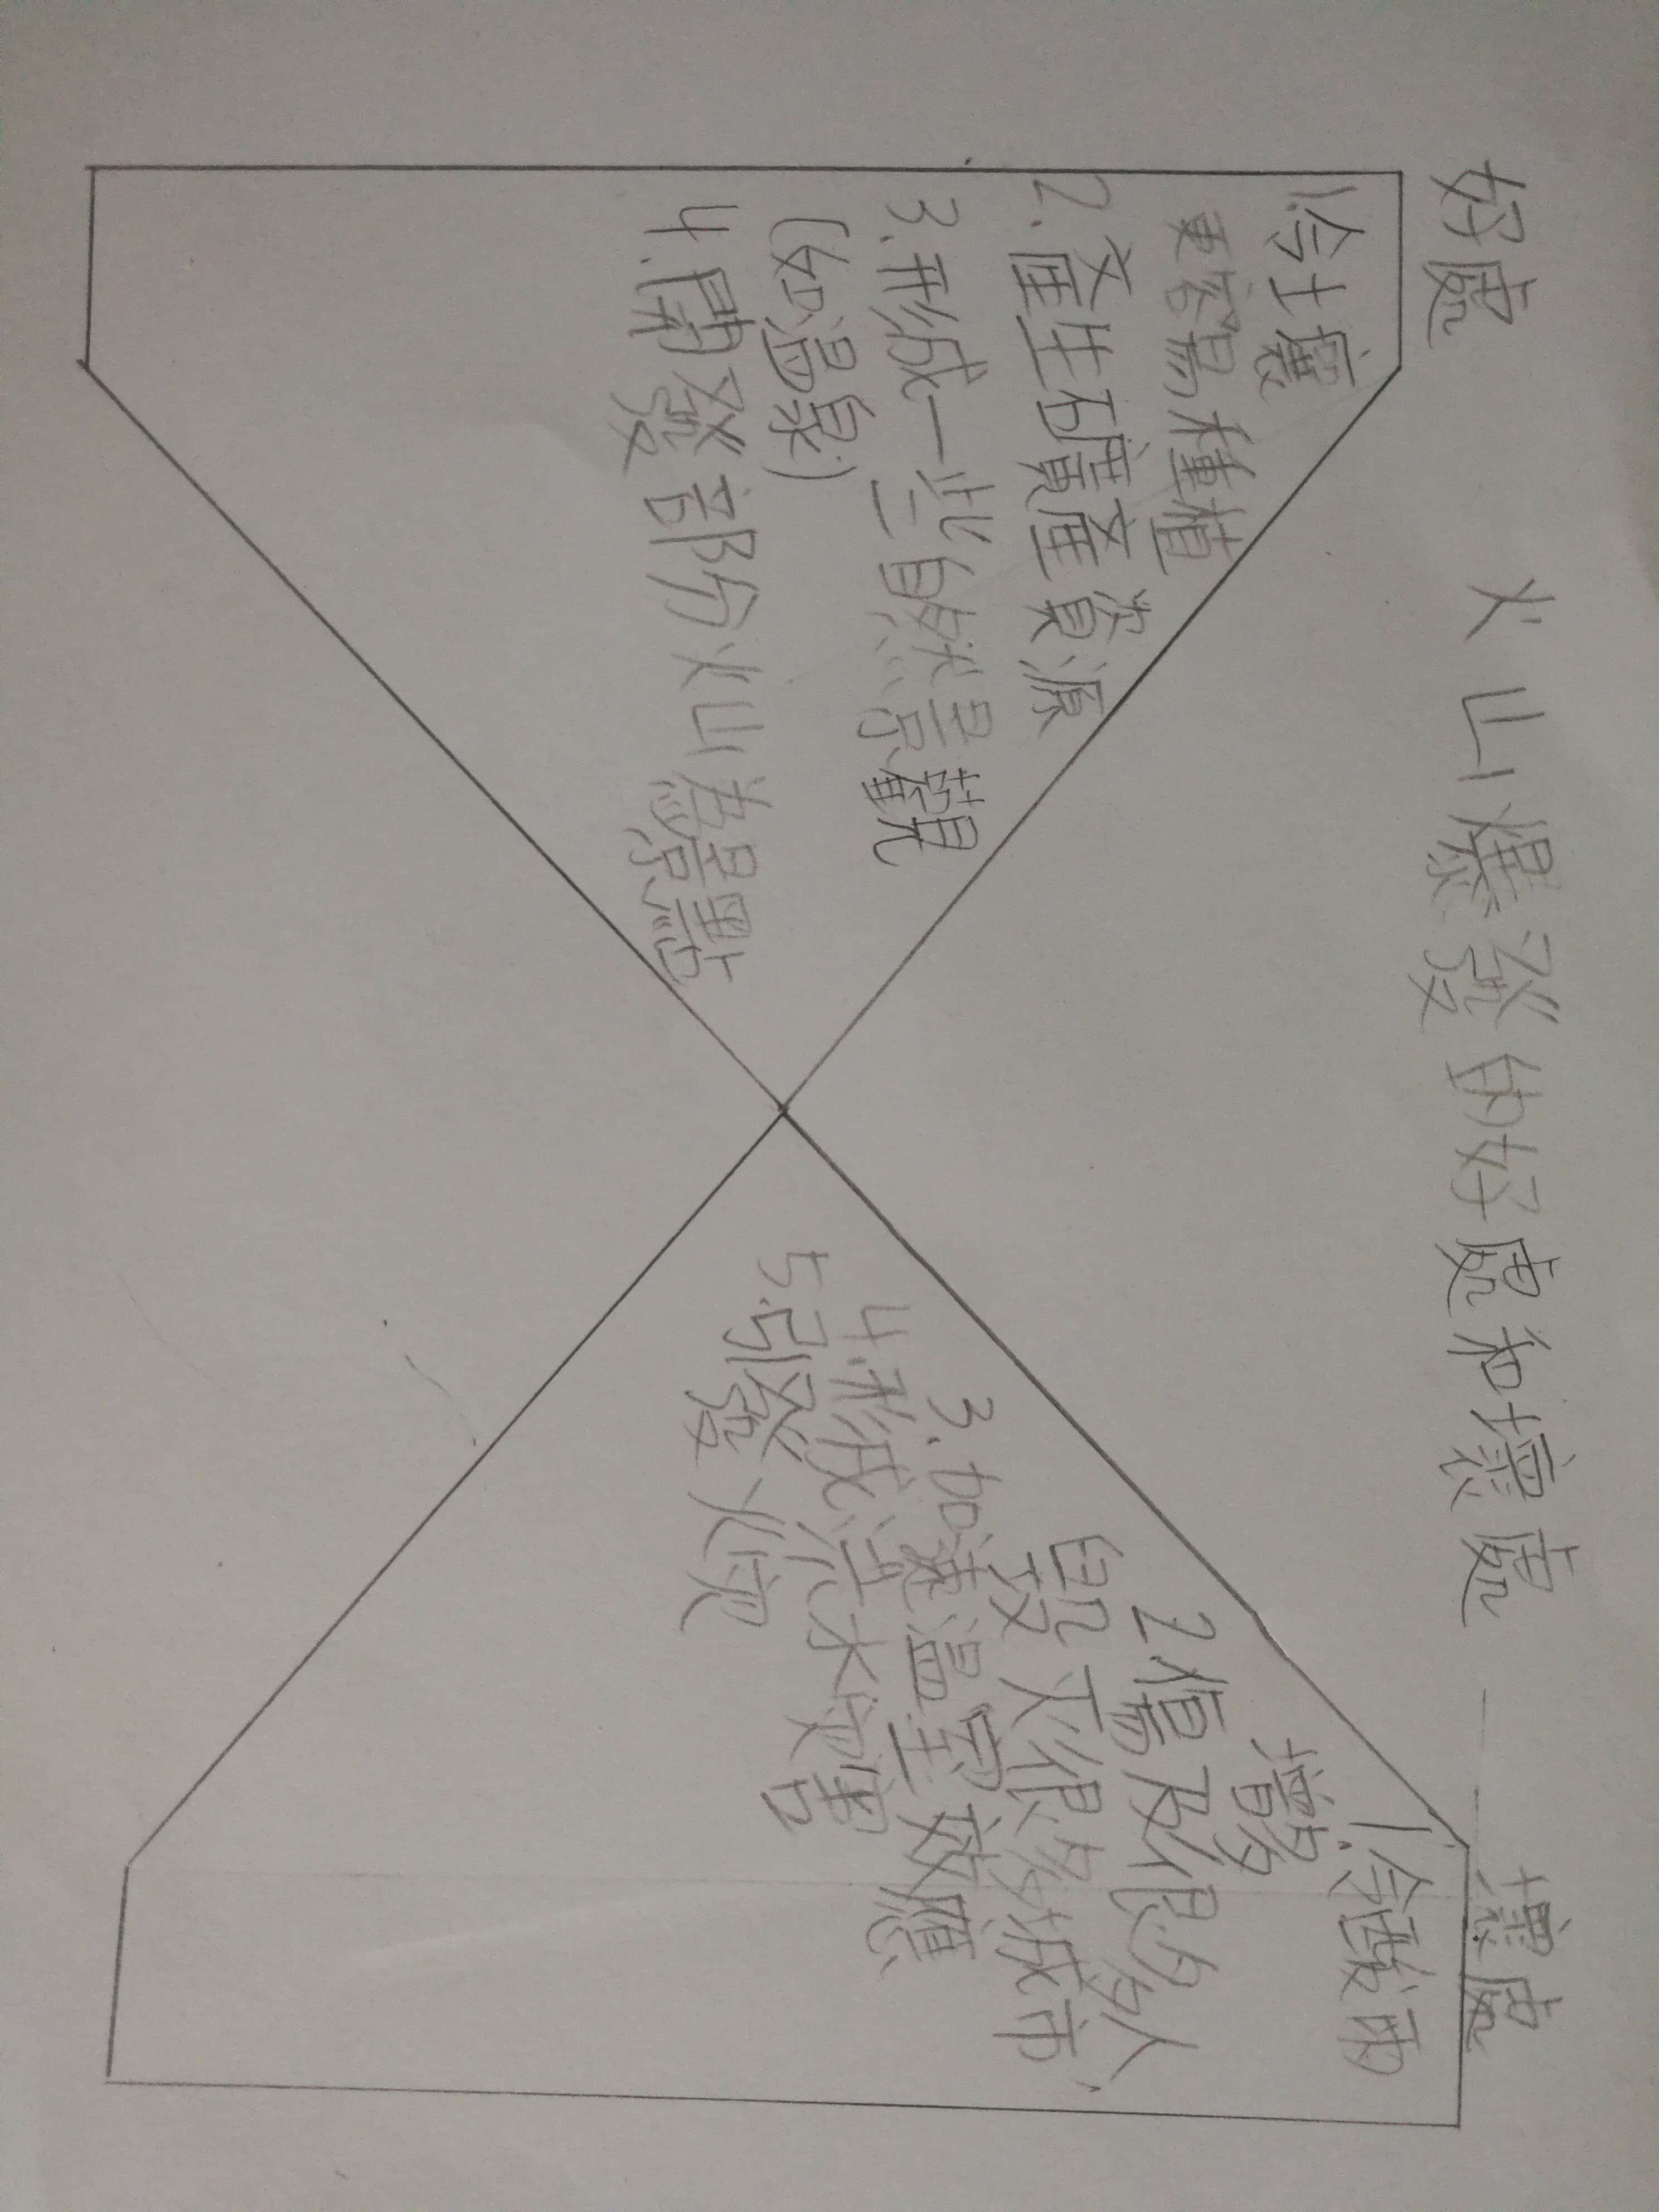 火山爆發的好處和壞處
好處
1.令土壤
更容易種植
2.產生礦產資源
3.形成一些自然景觀
(如溫泉)
4.開發部分火山為景點
壞處
1.令酸雨
增多
2.傷及很多人,
毀滅很多城市
3.加速溫室效應
4.形成洪水災害
5.引發火災